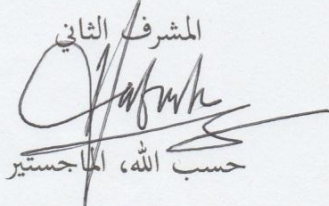 المشرف الثاني
حسب الله، الماجستير